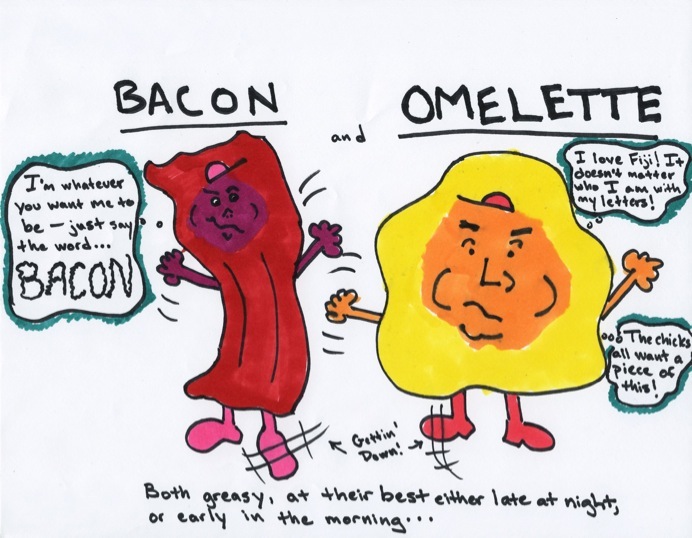 BACON
and
OMELETTE
I'm whatever
you want me to
be - just say
the word...
BACON
I love Fiji! It
doesn't matter
who I am with
my letters!
The chicks
all want a
piece of
this!
Gettin'
Down!
Both greasy, at their best either late at night,
or early in the morning...